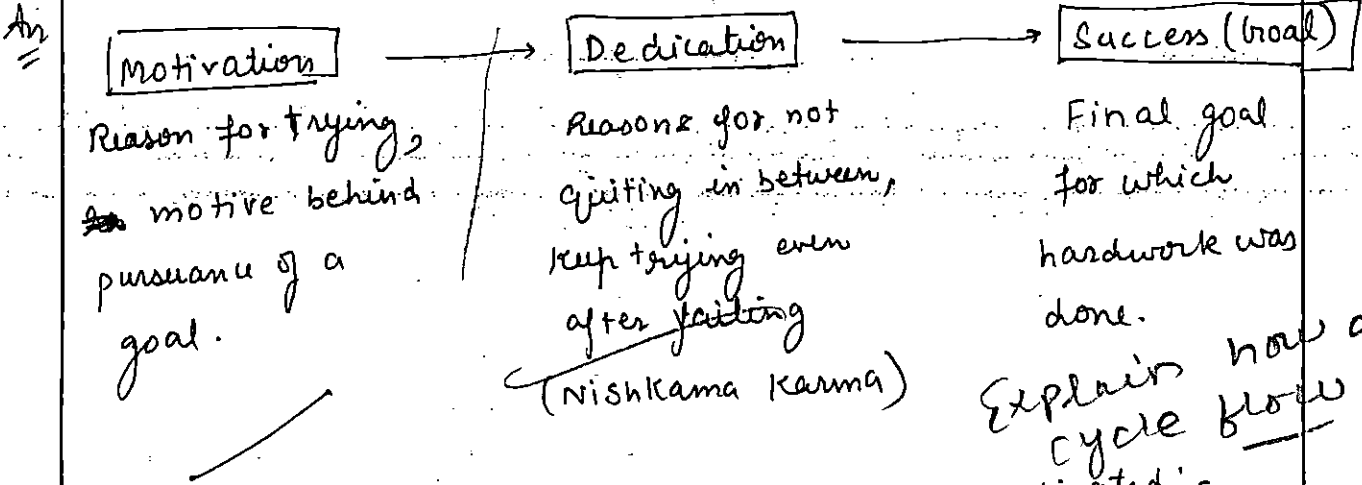 An
Motivation → Dedication → Success (Goal)
Reason for trying,
motive behind
pursuance of a
goal.
Reasons for not
quiting in between,
keep trying even
after failing
(Nishkama Karma)
Final goal
for which
hardwork was
done.
Explain how a
cycle flow